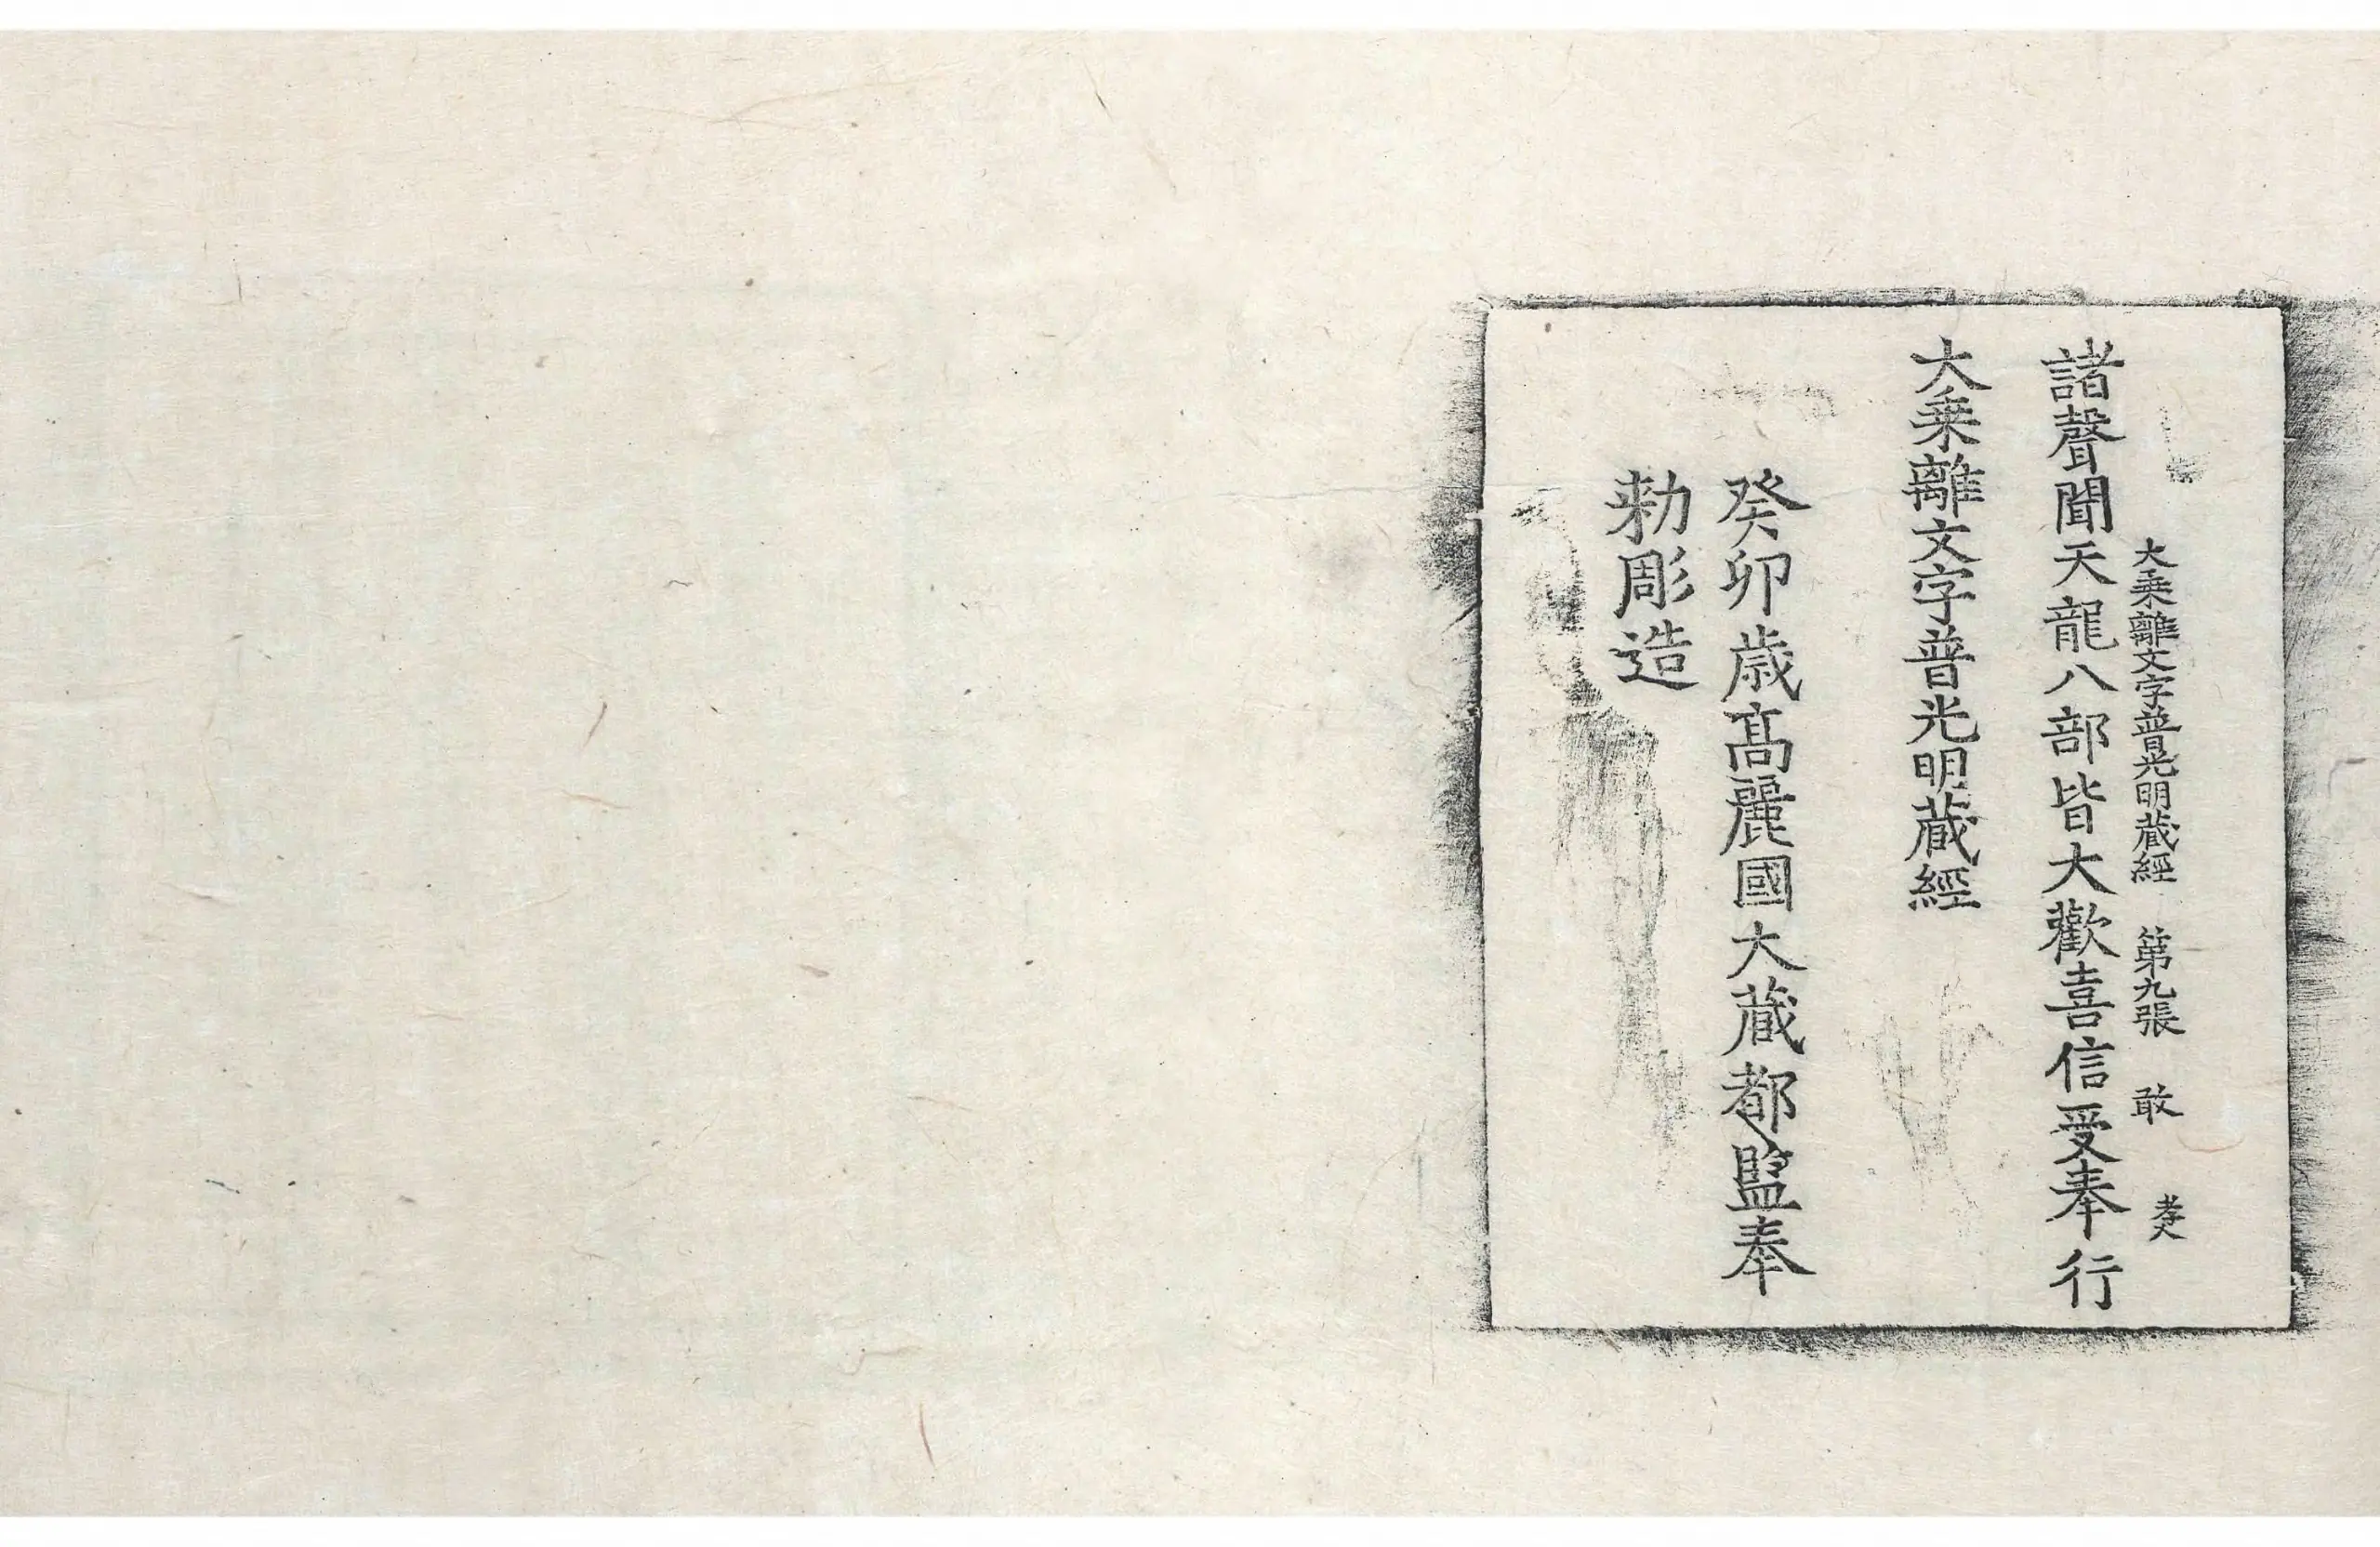 大乗離文字普光明蔵經 第九張 敢 孝大
諸聲聞天龍八部皆大歡喜信受奉行
大乗離文字普光明蔵經
癸卯歳髙麗國大蔵都監奉
勅彫造